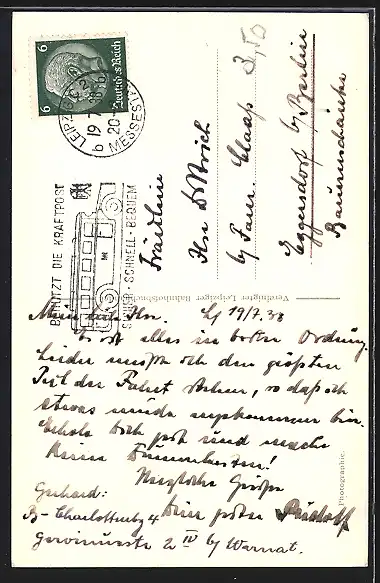 6 6
Deutsches Reich
LEIPZIG C 2
19.7.38
20-
b
MESSESTADT
BENUTZT DIE KRAFTPOST
SICHER-SCHNELL-BEQUEM
3,50
Fräulein
Ilse Dittrich
b/ Fam. Claass
Eggersdorf b/ Berlin
Bauernschänke
Vereinigter Leipziger Bahnhofsbuchh
Photographie.
Meine Ilse! Lg 19/7.38
Es ist alles in bester Ordnung.
Leider mußte ich den größten
Teil der Fahrt stehen, so daß ich
etwas müde angekommen bin.
Erhole Dich gut und mache
keine Dummheiten!
Herzliche Grüße
Dein guter Rudolf
Gerhard:
B-Charlottenbg 4
2 IV b/ Warnat.